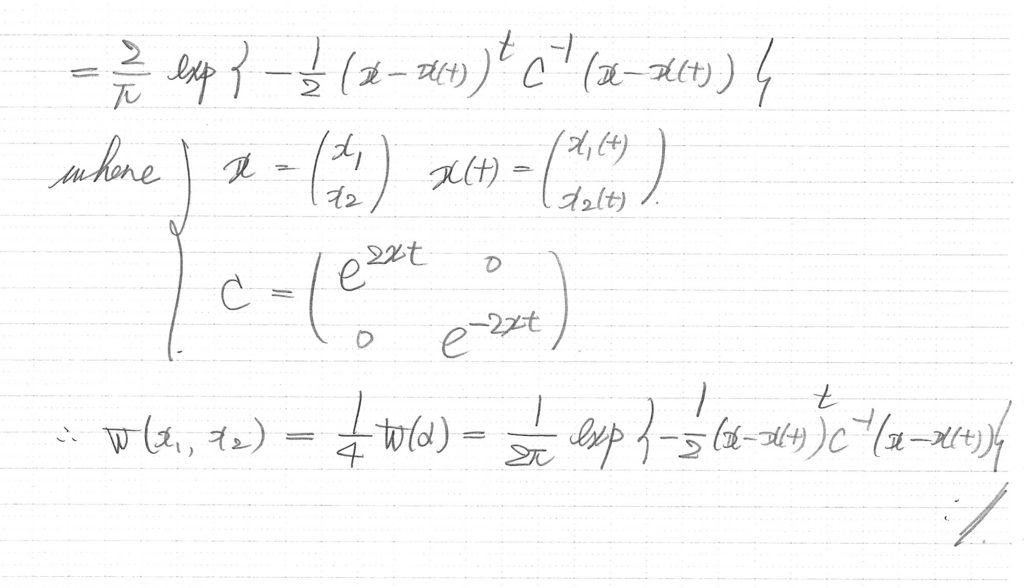 = 2/π exp{ -1/2 (x - x(t))^t C^-1 (x - x(t)) }
where { x = (x1 x2) x(t) = (x1(t) x2(t)).
C = (e^2χt 0 0 e^-2χt)
∴ W(x1, x2) = 1/4 W(α) = 1/2π exp{ -1/2 (x - x(t))^t C^-1 (x - x(t)) }